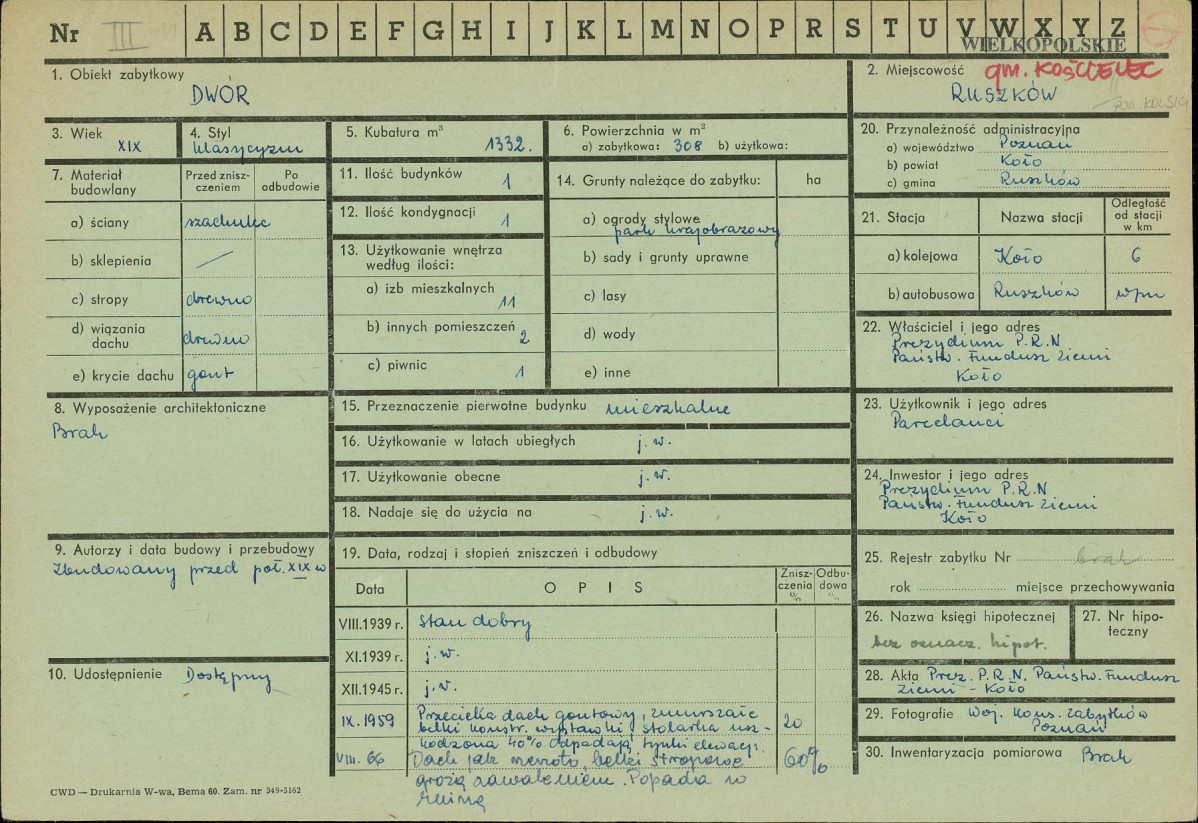 Nr III A B C D E F G H I J K L M N O P R S T U V W X Y Z
WIELKOPOLSKIE
1. Obiekt zabytkowy
DWÓR
2. Miejscowość gm. KOŚCIELEC
RUSZKÓW
3. Wiek
XIX
4. Styl
klasycyzm
5. Kubatura m³
1332.
6. Powierzchnia w m²
a) zabytkowa: 308 b) użytkowa:
20. Przynależność administracyjna
a) województwo Poznań
b) powiat Koło
c) gmina Ruszków
7. Materiał budowlany
Przed zniszczeniem
Po odbudowie
a) ściany szachulec
b) sklepienia —
c) stropy drewno
d) wiązania dachu drewno
e) krycie dachu gont
11. Ilość budynków 1
12. Ilość kondygnacji 1
13. Użytkowanie wnętrza
według ilości:
a) izb mieszkalnych
11
b) innych pomieszczeń 2
c) piwnic 1
14. Grunty należące do zabytku: ha
a) ogrody stylowe
park krajobrazowy
b) sady i grunty uprawne
c) lasy
d) wody
e) inne
21. Stacja
Nazwa stacji
Odległość
od stacji
w km
a) kolejowa Koło 6
b) autobusowa Ruszków wpm
22. Właściciel i jego adres
Prezydium P.R.N
Państw. Fundusz Ziemi
Koło
8. Wyposażenie architektoniczne
Brak
15. Przeznaczenie pierwotne budynku mieszkalne
16. Użytkowanie w latach ubiegłych j.w.
17. Użytkowanie obecne j.w.
18. Nadaje się do użycia na j.w.
23. Użytkownik i jego adres
Parcelanci
24. Inwestor i jego adres
Prezydium P.R.N
Państw. Fundusz Ziemi
Koło
9. Autorzy i data budowy i przebudowy
Zbudowany przed poł. XIX w
10. Udostępnienie Dostępny
19. Data, rodzaj i stopień zniszczeń i odbudowy
Data
OPIS
Zniszczenia %
Odbudowa %
VIII.1939 r. stan dobry
XI.1939 r. j.w.
XII.1945 r. j.w.
IX.1959 Przecieka dach gontowy, zmurszałe
belki konstr. wystawki stolarka usz-
kodzona 40% odpadają tynki elewacji. 20
VIII.66 Dach jak rzeszoto, belki stropowe 60%
grożą zawaleniem. Popada w
ruinę
25. Rejestr zabytku Nr brak
rok miejsce przechowywania
26. Nazwa księgi hipotecznej
bez oznacz. hipot.
27. Nr hipo-
teczny
28. Akta Prez. P.R.N. Państw. Fundusz
Ziemi - Koło
29. Fotografie Woj. Kons. Zabytków
Poznań
30. Inwentaryzacja pomiarowa Brak
CWD — Drukarnia W-wa, Bema 60. Zam. nr 349-5162